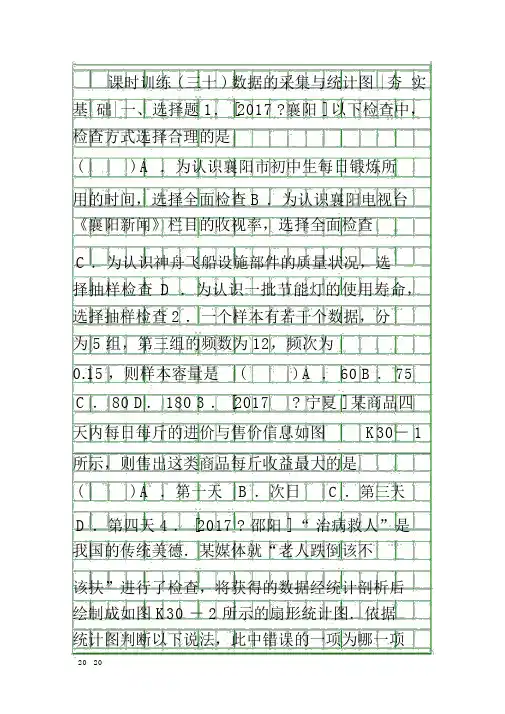 课时训练(三十)数据的采集与统计图 夯 实
基 础 一、选择题1. [2017?襄阳]以下检查中,
检查方式选择合理的是
( )A .为认识襄阳市初中生每日锻炼所
用的时间,选择全面检查B .为认识襄阳电视台
《襄阳新闻》栏目的收视率,选择全面检查
C .为认识神舟飞船设施部件的质量状况,选
择抽样检查 D .为认识一批节能灯的使用寿命,
选择抽样检查2 .一个样本有若干个数据,分
为5组,第三组的频数为12,频次为
0.15 ,则样本容量是 ( )A . 60 B . 75
C . 80 D . 180 3 . [2017 ?宁夏]某商品四
天内每日每斤的进价与售价信息如图 K30—1
所示,则售出这类商品每斤收益最大的是
( )A .第一天 B .次日 C .第三天
D .第四天4 . [2017?邵阳]“治病救人”是
我国的传统美德.某媒体就“老人跌倒该不
该扶”进行了检查,将获得的数据经统计剖析后
绘制成如图K30 —2所示的扇形统计图.依据
统计图判断以下说法,此中错误的一项为哪一项
20 20